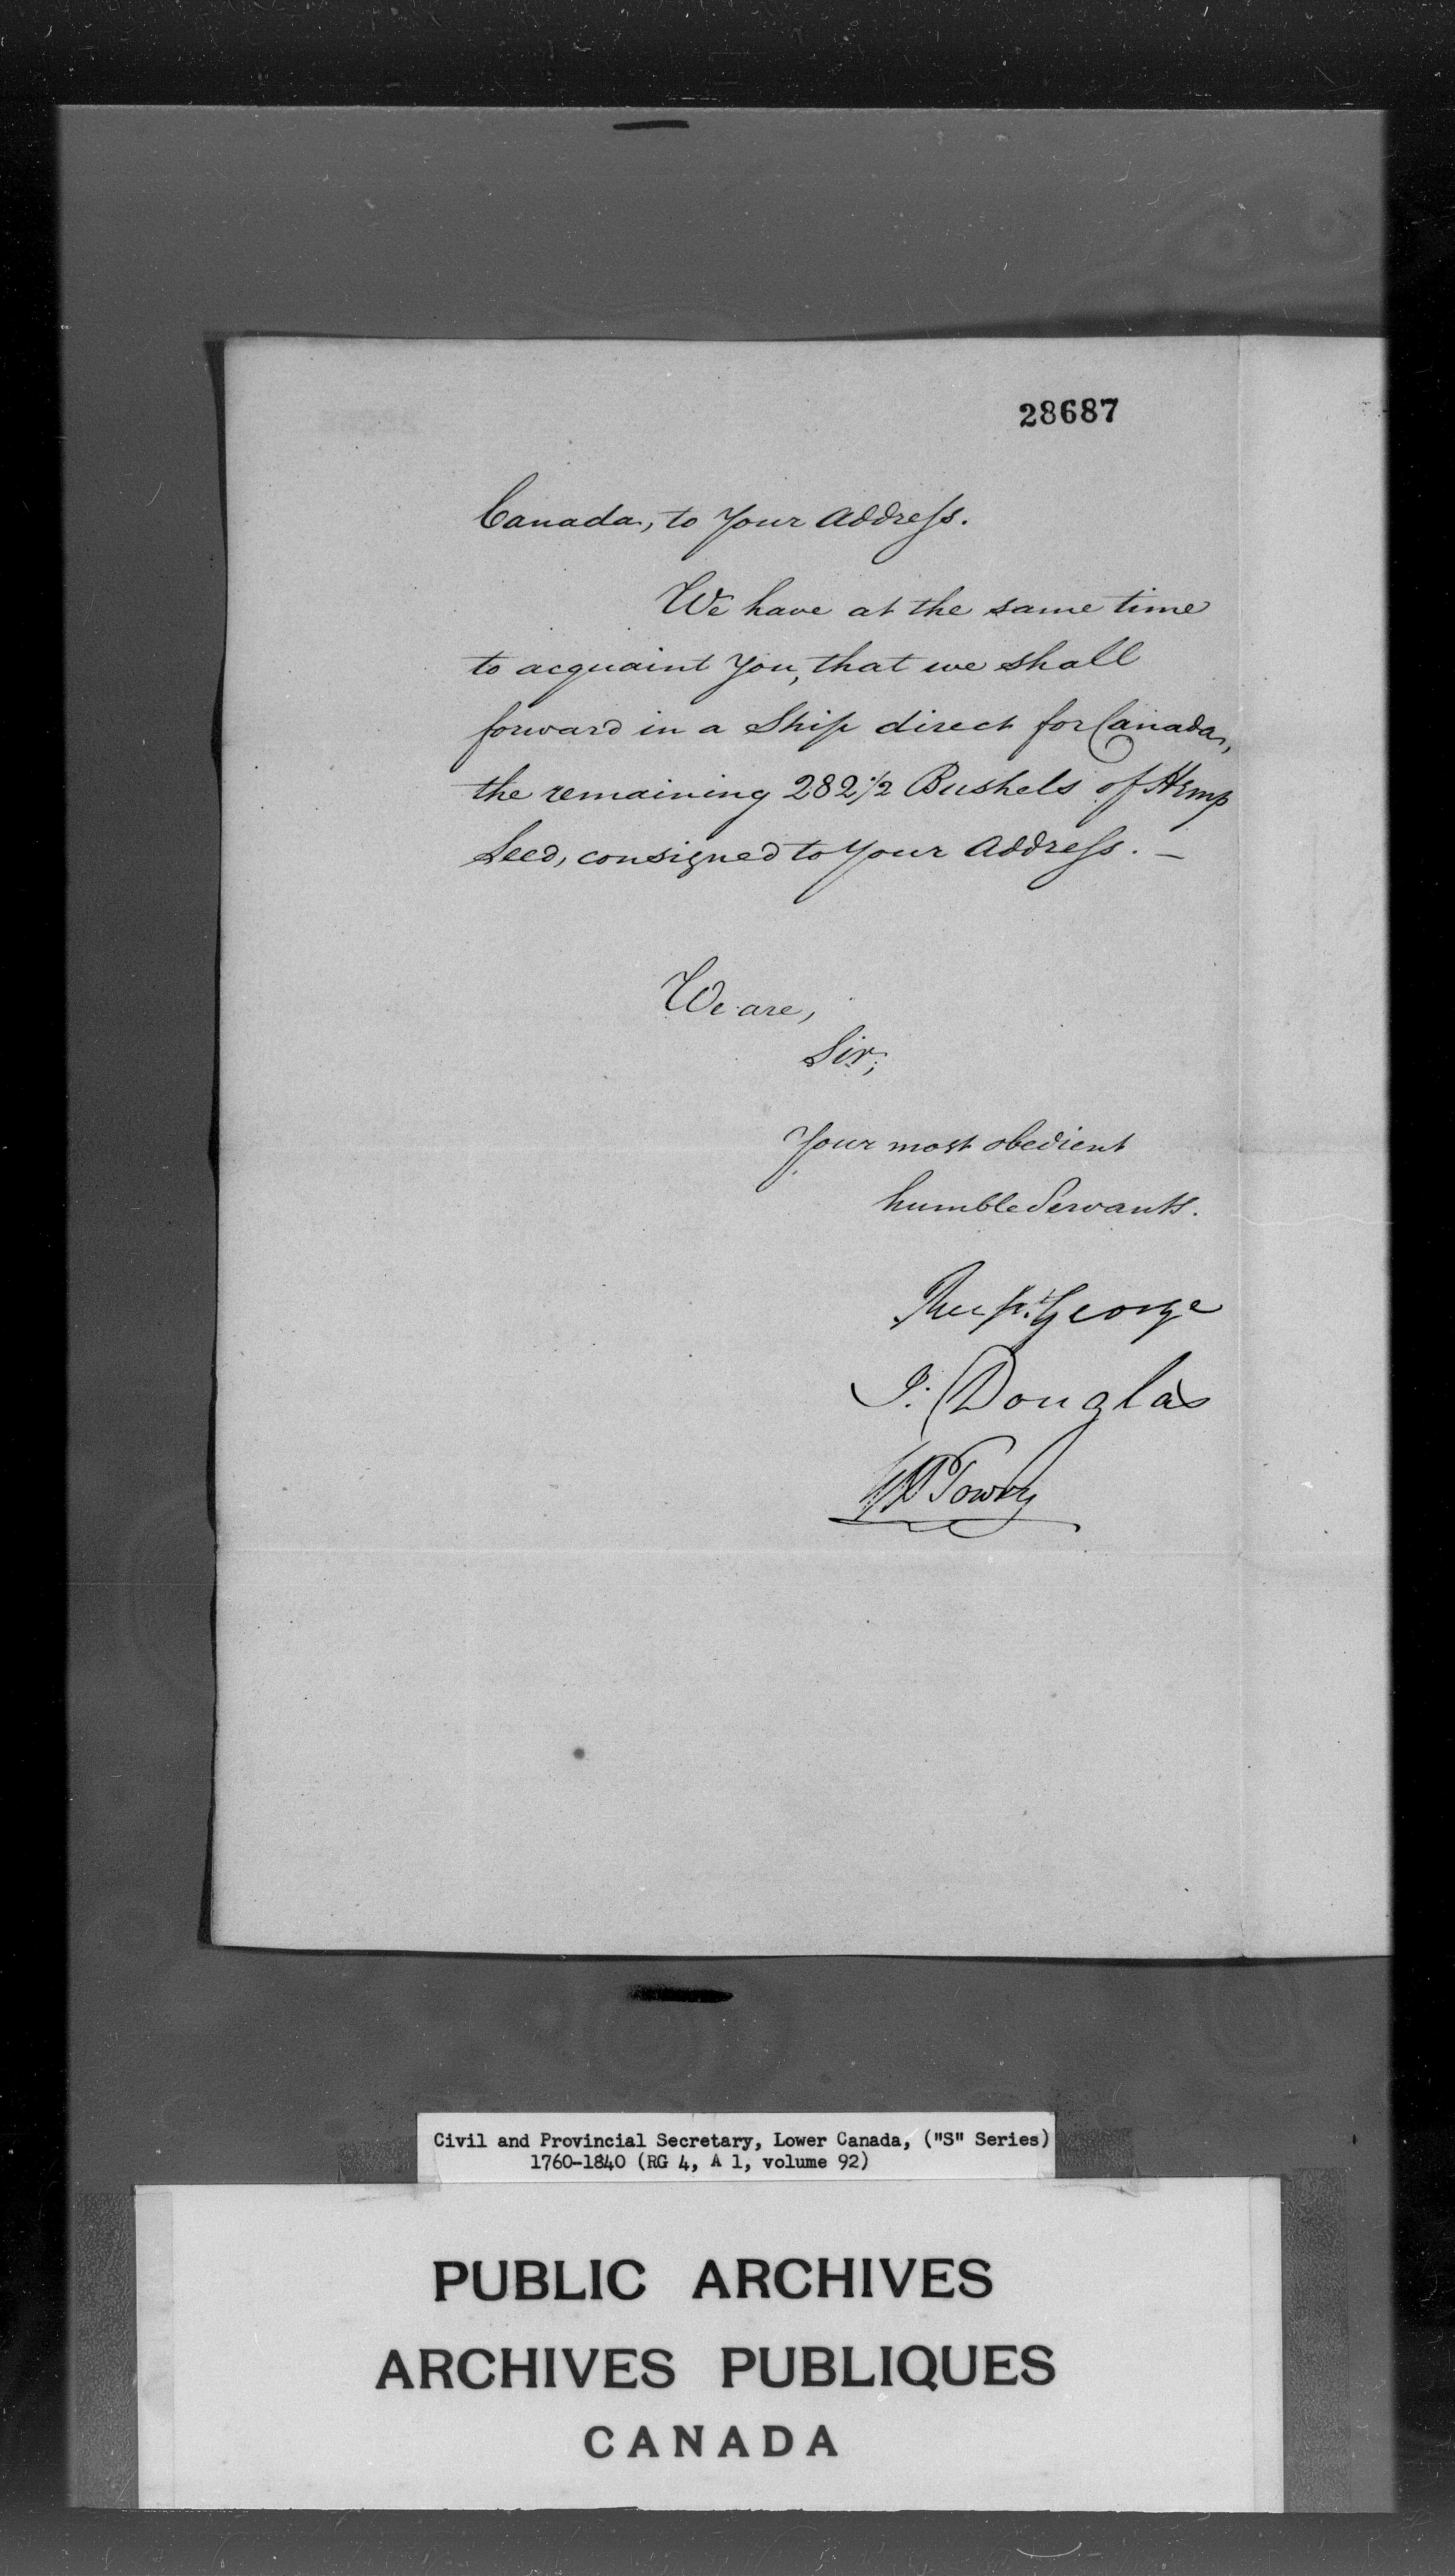 28687
Canada, to Your Address.
We have at the same time
to acquaint You, that we shall
forward in a Ship direct for Canada,
the remaining 282 1/2 Bushels of Hemp
Seed, consigned to Your Address. —
We are,
Sir;
Your most obedient
humble Servants.
Rup. George
J: Douglas
Towry
Civil and Provincial Secretary, Lower Canada, ("S" Series)
1760-1840 (RG 4, A 1, volume 92)
PUBLIC ARCHIVES
ARCHIVES PUBLIQUES
CANADA